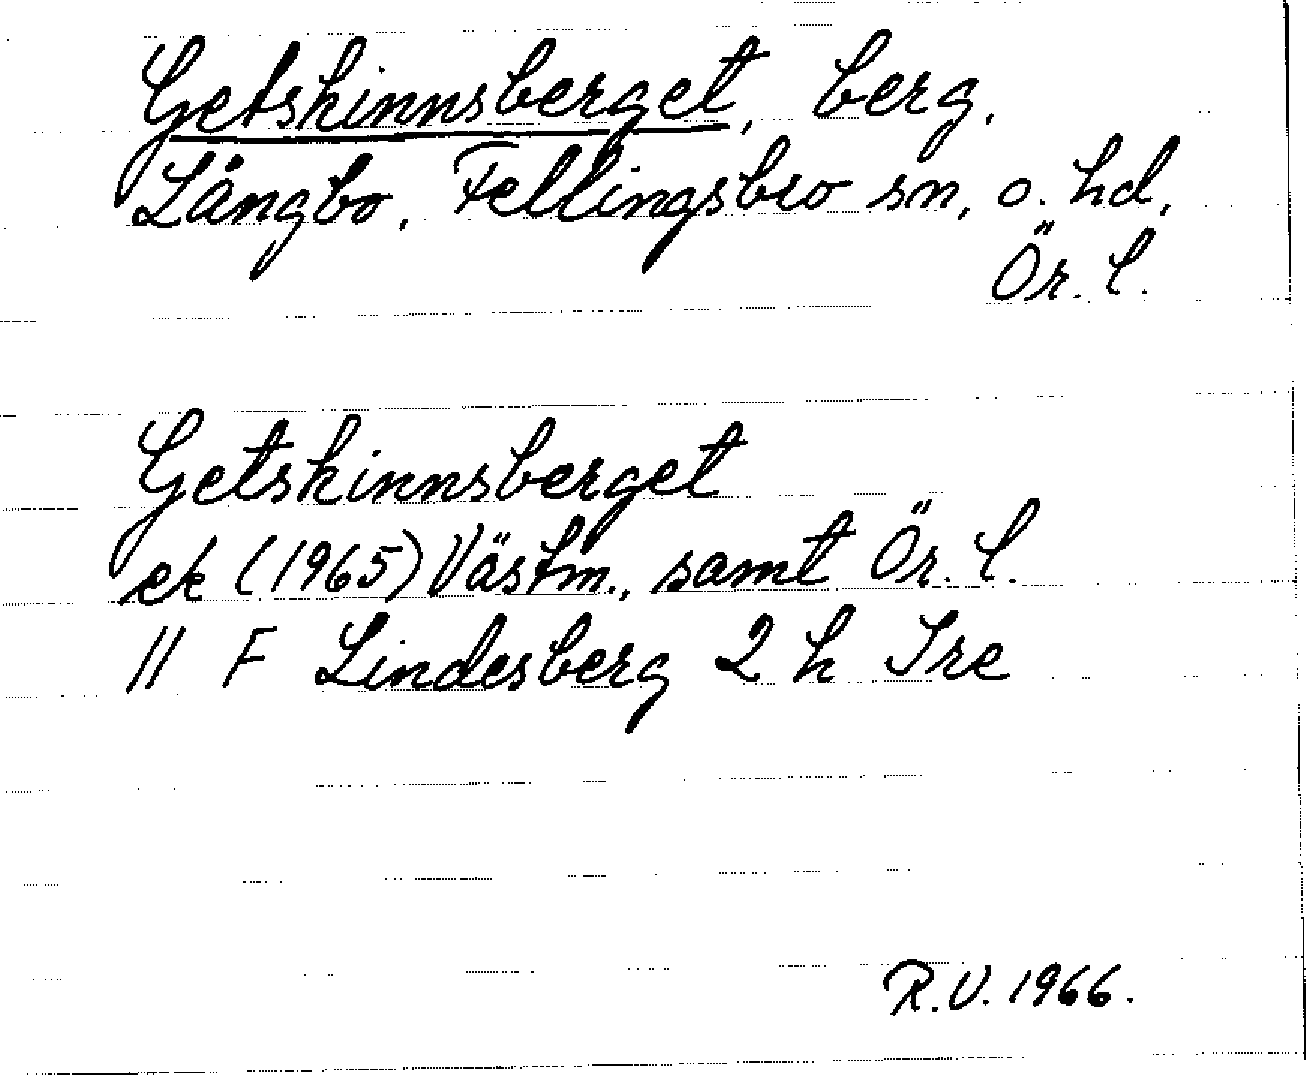 Getskinnsberget, berg,
Långbo, Fellingsbro sn, o. hd,
Ör. l.
Getskinnsberget
ek (1965) Västm., samt Ör. l.
// F Lindesberg 2 h Ire
R.V. 1966.